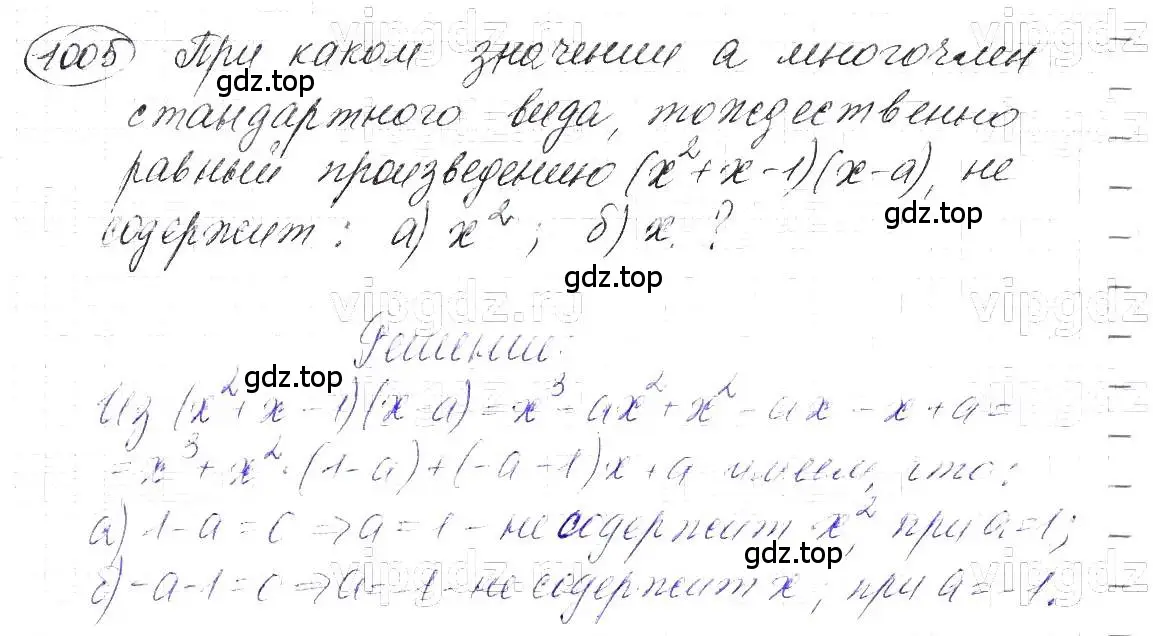 1005 При каком значении а многочлен
gdz.top
стандартного вида, тождественно
равный произведению (x²+x-1)(x-a), не
gdz.top
содержит: а) x²; б) x.?
gdz.top
vipgdz.ru
vipgdz
Решение:
gdz.top
Из (x²+x-1)(x-a)=x³-ax²+x²-ax-x+a=
=x³+x²·(1-a)+(-a-1)x+a имеем, что:
а) 1-a=0 ⇒ a=1 - не содержит x², при a=1;
gdz.top
б) -a-1=0 ⇒ a=-1 - не содержит x, при a=-1.